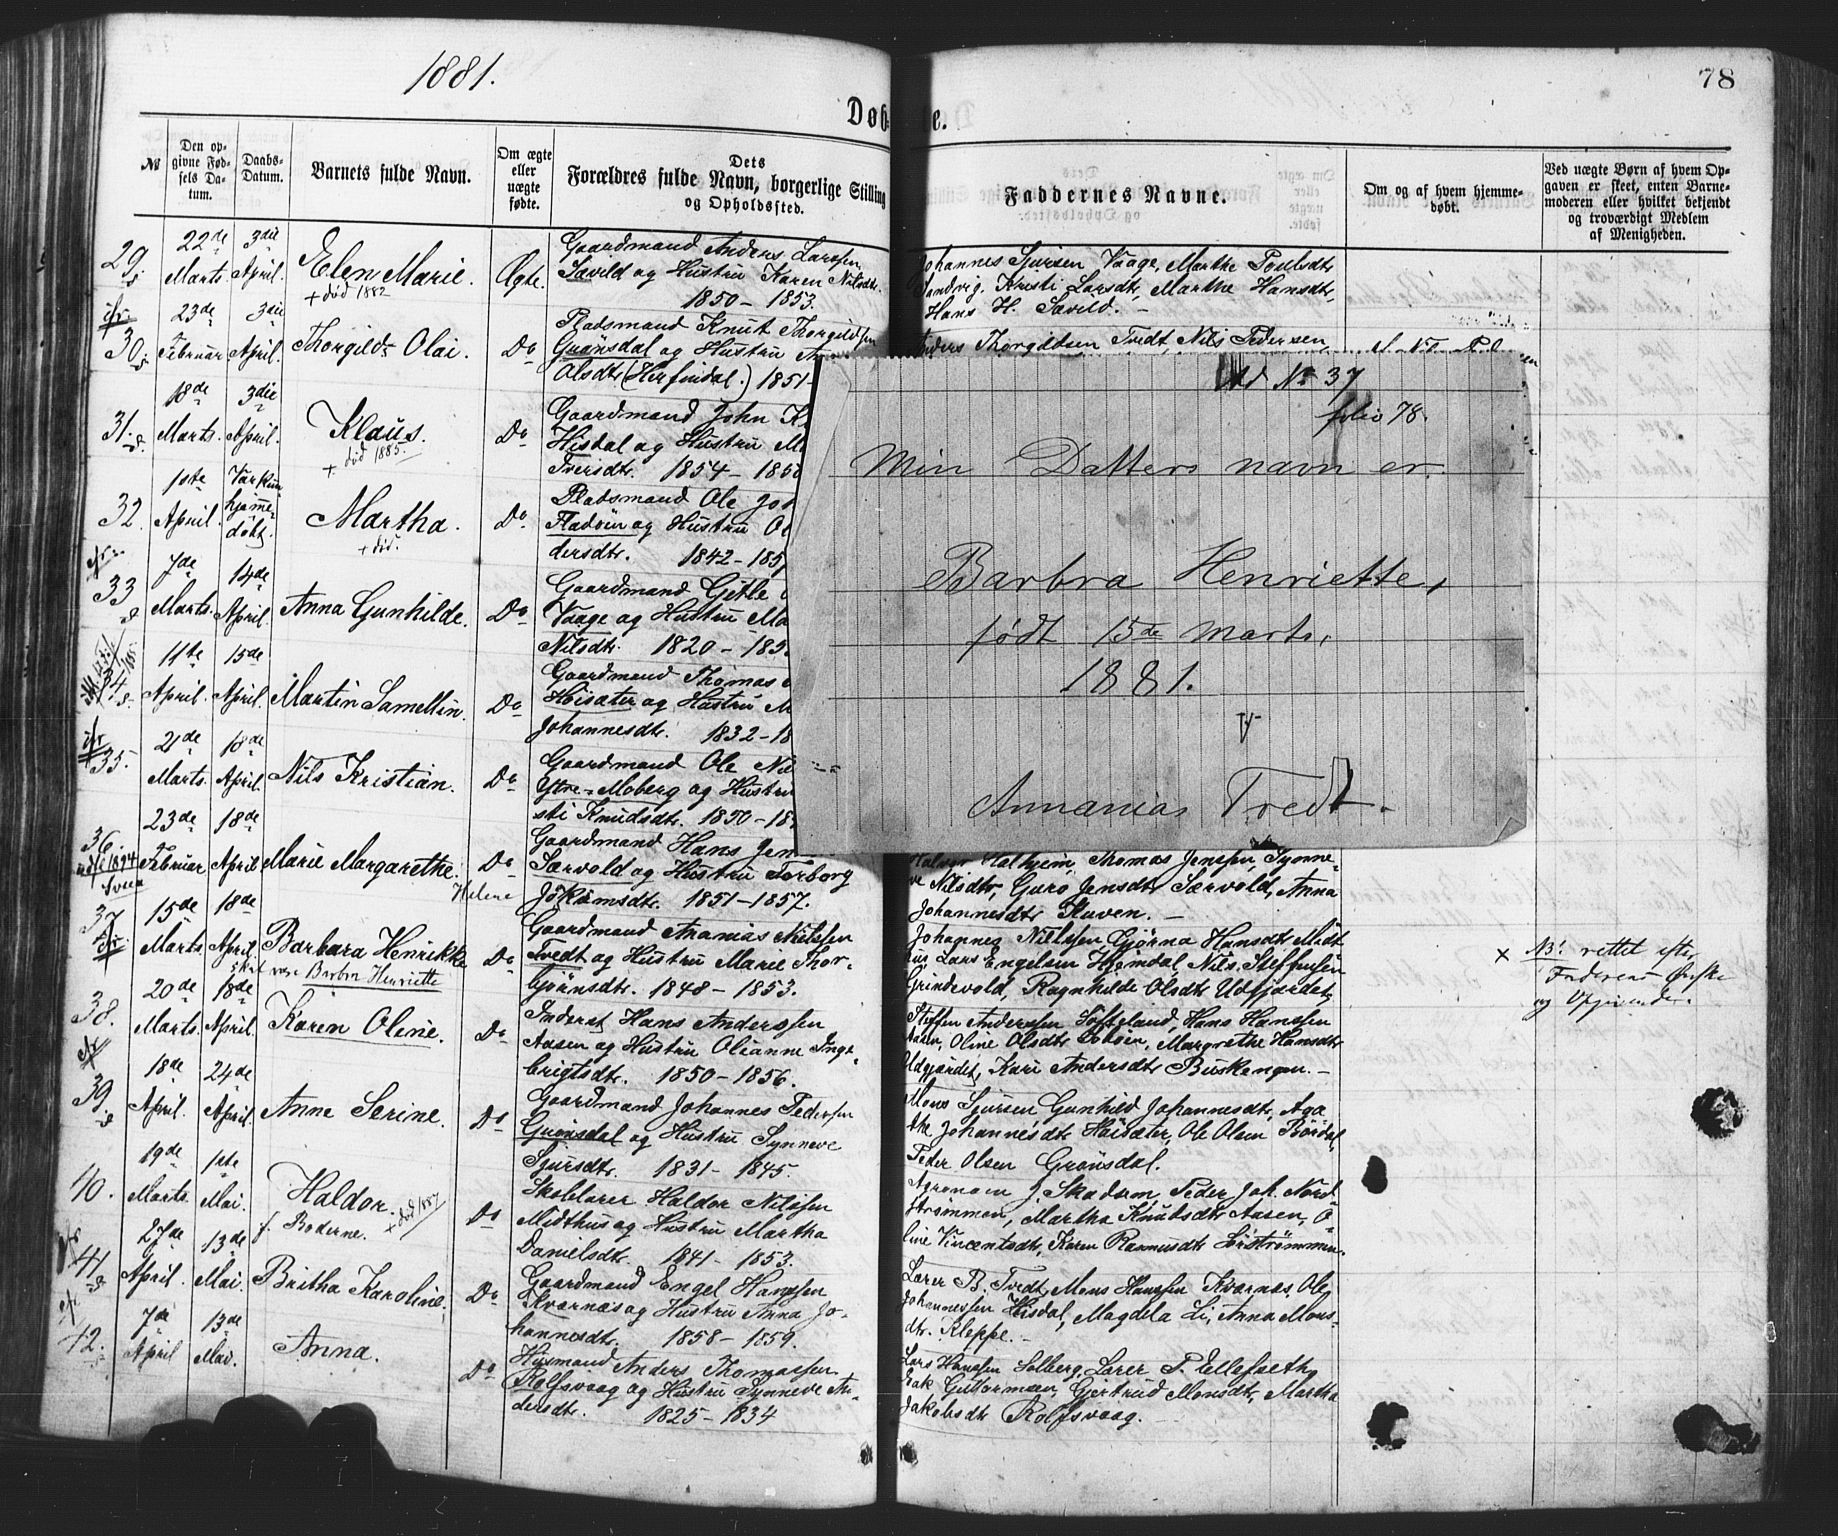 1881.
78
Døb
e.
№
Den op-
givne Fød-
sels Da-
tum.
Daabs-
Datum.
Barnets fulde Navn.
Om ægte
eller
uægte
fødte.
Dets
Forældres fulde Navn, borgerlige Stilling
og Opholdssted.
Faddernes Navne.
Om og af hvem hjemme-
døbt.
Ved uægte Børn af hvem Op-
gaven er skeet, enten Barne-
moderen eller hvilket bekjendt
og troværdigt Medlem
af Menigheden.
29
22de
Marts.
3die
April.
Elen Marie.
+ død 1882
Ægte.
Gaardmand Anders Larssen,
Sævild og Hustru Karen Nilsdtr.
1850 - 1853.
Johannes Sjursen Vaage, Marthe Poulsdtr
Sandvig, Kristi Larsdtr, Marthe Hansdtr,
Hans H. Sævild. -
30
23de
Februar
3die
April.
Thorgilds Olai.
Do
Pladsmand Knut Thorgildsen
Grønsdal og Hustru
Olsdtr (Herfindal.) 1851-
Anders Thorgildsen Tvedt, Nils Pedersen
31.
18de
Marts.
3die
April.
Klaus.
+ død 1885.
Do
Gaardmand John K
Hisdal og Hustru M
Iversdtr. 1854 -
32.
1ste
April.
Var kun
hjemme-
døbt.
Martha.
+ død.
Do
Pladsmand Ole
Fladøen og Hustru
dersdtr. 1842 -
33
7de
Marts.
14de
April.
Anna Gunhilde.
Do
Gaardmand Gitle
Vaage og Hustru Ma
Nilsdtr. 1820 -
34
11te
April.
15de
April.
Martin Samellin.
Do
Gaardmand Thomas
Høisæter og Hustru M
Johannesdtr. 1832 - 18
35.
21de
Marts.
18de
April.
Nils Kristian.
Do
Gaardmand Ole Nil
Ytre-Moberg og Hustru
sti Knudsdtr. 1850 - 18
36.
23de
Februar
18de
April
Marie Margarethe.
Do
Gaardmand Hans Jen
Særvold og Hustru Torborg
Helene Joramsdtr. 1851 - 1857.
Halvor Halhjem, Thomas Jenssen, Synne-
ve Nilsdtr, Guro Jensdtr Særvold, Anna
Johannesdtr Skuven. -
37
15de
Marts.
18de
April.
Barbara Henrikke
skal være Barbra Henriette
Do
Gaardmand Ananias Nilssen
Tvedt og Hustru Marie Thor-
bjørnsdtr. 1848 - 1853.
Johannes Nielssen Gjørna Hansdtr Midt
hus Lars Engelsen Hjemdal, Nils Steffensen
Grindevold, Ragnhilde Olsdtr Udfjordet,
× NB! rettet efter
Faderens Ønske
og Opgivende.
38.
20de
Marts.
18de
April.
Karen Oline.
Do
Inderst Hans Anderssen
Aasen og Hustru Olianne Inge-
brigtsdtr. 1850 - 1856.
Steffen Anderssen Søfteland, Hans Hanssen
Aasen, Oline Olsdtr Bohøien, Margrethe Hansdtr
Udfjordet, Kari Andersdtr Buskangen. -
39.
18de
April.
24de
April.
Anne Serine.
Do
Gaardmand Johannes Pedersen
Grønsdal og Hustru Synneve
Sjursdtr. 1831 - 1845.
Mons Sjursen Gunhild Johannesdtr, Aga
the Johannesdtr Høisæter, Ole Olsen Børdal,
Peder Olsen Grønsdal.
40.
19de
Marts.
1ste
Mai.
Haldor.
f. Boderne. + død 1887
Do
Skolelærer Haldor Nilssen
Midthus og Hustru Martha
Danielsdtr. 1841 - 1853.
Agronom J. Skadsem, Peder Joh. Nord-
strømmen, Martha Knutsdtr Aasen, O-
line Vincentsdtr, Karen Rasmusdtr Sørstrømmen.
41
27de
April.
13de
Mai.
Britha Karoline.
Do
Gaardmand Engel Hanssen
Kvarnæs og Hustru Anna Jo-
hannesdtr. 1858 - 1859.
Lærer B. Tvedt, Mons Hanssen Kvarnes, Ole
Johannessen Hisdal, Magdela Li, Anna Mons-
dtr. Kleppe. -
42.
7de
April
13de
Mai.
Anna.
Do
Husmand Anders Thomassen
Rolfsvaag og Hustru Synneve An-
dersdtr. 1825 - 1834
Lars Hanssen Solberg, Lærer P. Ellefsæth,
Isak Guttormsen, Gjertrud Monsdtr, Martha
Jakobsdtr Rolfsvaag.
Ad No 37
folio 78.
Min Datters navn er.
Barbra Henriette,
født 15de Marts,
1881.
Annanias Tvedt.